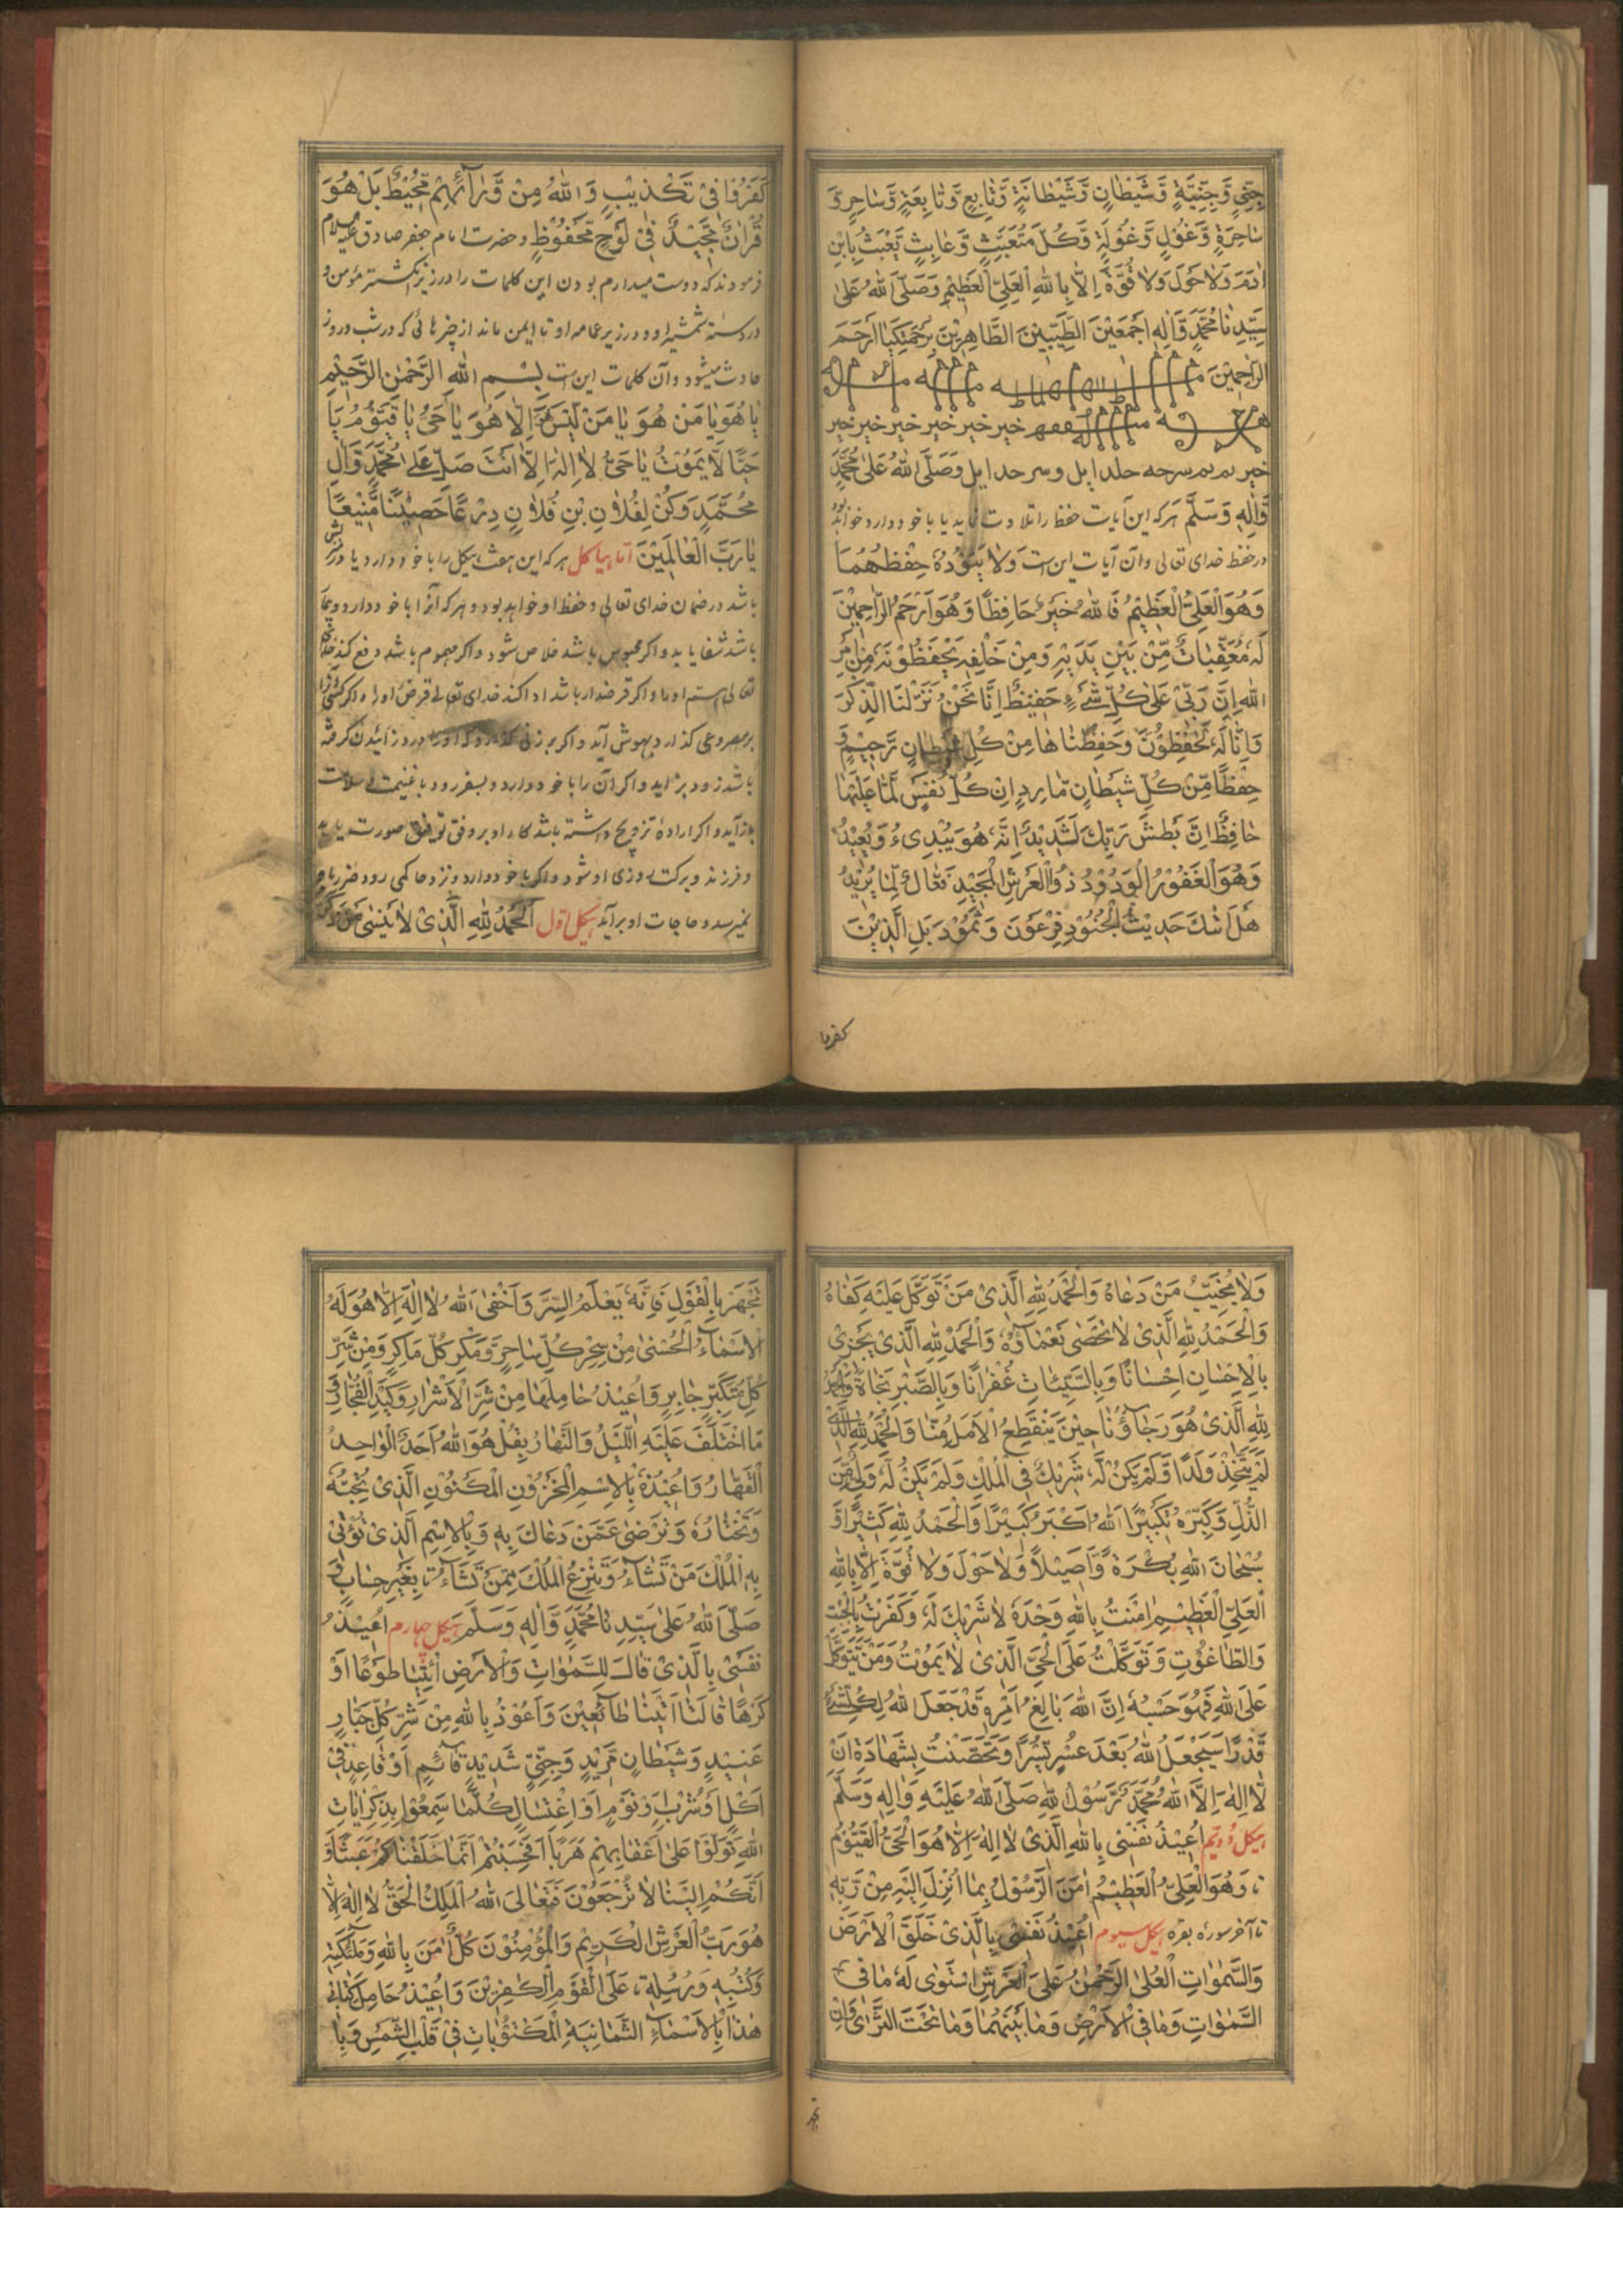 جِنِّيٍّ وَّجِنِّيَّةٍ وَّشَيْطَانٍ وَّشَيْطَانَةٍ وَّتَابِعٍ وَّتَابِعَةٍ وَّسَاحِرٍ وَّ
سَاحِرَةٍ وَّغُوْلٍ وَّغُوْلَةٍ وَّكُلِّ مُتَعَبِّثٍ وَّعَابِثٍ يَّعْبَثُ بِابْنِ
اٰدَمَ وَلَا حَوْلَ وَلَا قُوَّةَ اِلَّا بِاللّٰهِ الْعَلِيِّ الْعَظِيْمِ وَصَلَّى اللّٰهُ عَلٰى
سَيِّدِنَا مُحَمَّدٍ وَّاٰلِهٖ اَجْمَعِيْنَ الطَّيِّبِيْنَ الطَّاهِرِيْنَ بِرَحْمَتِكَ يَا اَرْحَمَ
الرَّاحِمِيْنَ
خير خير خير خير خير خير
خير وصَلَّى اللّٰهُ عَلٰى مُحَمَّدٍ
وَّاٰلِهٖ وَسَلَّمَ هر كه اين آيات حفظ را تلاوت نمايد يا با خود دارد خواهد بود
در حفظ خداى تعالى وآن آيات اين ست وَلَا يَئُوْدُهٗ حِفْظُهُمَا
وَهُوَ الْعَلِيُّ الْعَظِيْمُ فَاللّٰهُ خَيْرٌ حَافِظًا وَهُوَ اَرْحَمُ الرَّاحِمِيْنَ
لَهٗ مُعَقِّبَاتٌ مِّنْ بَيْنِ يَدَيْهِ وَمِنْ خَلْفِهٖ يَحْفَظُوْنَهٗ مِنْ اَمْرِ
اللّٰهِ اِنَّ رَبِّيْ عَلٰى كُلِّ شَيْءٍ حَفِيْظٌ اِنَّا نَحْنُ نَزَّلْنَا الذِّكْرَ
وَاِنَّا لَهٗ لَحٰفِظُوْنَ وَحَفِظْنَاهَا مِنْ كُلِّ شَيْطَانٍ رَّجِيْمٍ وَّ
حِفْظًا مِّنْ كُلِّ شَيْطَانٍ مَّارِدٍ اِنْ كُلُّ نَفْسٍ لَّمَّا عَلَيْهَا
حَافِظٌ اِنَّ بَطْشَ رَبِّكَ لَشَدِيْدٌ اِنَّهٗ هُوَ يُبْدِئُ وَيُعِيْدُ
وَهُوَ الْغَفُوْرُ الْوَدُوْدُ ذُو الْعَرْشِ الْمَجِيْدُ فَعَّالٌ لِّمَا يُرِيْدُ
هَلْ اَتٰكَ حَدِيْثُ الْجُنُوْدِ فِرْعَوْنَ وَثَمُوْدَ بَلِ الَّذِيْنَ
كفروا
كَفَرُوْا فِيْ تَكْذِيْبٍ وَاللّٰهُ مِنْ وَّرَآئِهِمْ مُّحِيْطٌ بَلْ هُوَ
قُرْاٰنٌ مَّجِيْدٌ فِيْ لَوْحٍ مَّحْفُوْظٍ وحضرت امام جعفر صادق عليه السلام
فرمودند كه دوست ميدارم بودن اين كلمات را در زير انگشتر مؤمن و
در دسته شمشير او و در زير عمامه او تا ايمن ماند از چيزهائى كه در شب و روز
حادث ميشود وآن كلمات اين ست بِسْمِ اللّٰهِ الرَّحْمٰنِ الرَّحِيْمِ
يَا هُوَ يَا مَنْ هُوَ يَا مَنْ لَيْسَ هُوَ اِلَّا هُوَ يَا حَيُّ يَا قَيُّوْمُ يَا
حَيًّا لَّا يَمُوْتُ يَا حَيُّ لَا اِلٰهَ اِلَّا اَنْتَ صَلِّ عَلٰى مُحَمَّدٍ وَّاٰلِ
مُحَمَّدٍ وَكُنْ لِفُلَانِ بْنِ فُلَانٍ دِرْعًا حَصِيْنًا مَّنِيْعًا
يَا رَبَّ الْعَالَمِيْنَ اما هياكل هر كه اين هفت هيكل را با خود دارد يا در
باشد در ضمان خداى تعالى و حفظ او خواهد بود و هر كه آنرا با خود دارد و بيمار
باشد شفا يابد و اگر محبوس باشد خلاص شود و اگر مهموم باشد دفع كند خداى
تعالى هم او را و اگر قرضدار باشد ادا كند خداى تعالى قرض او را و اگر كسى آنرا
بر مصروعى گذارد بهوش آيد و اگر بر زنى گذارد كه او را درد زائيدن گرفته
باشد زود بزايد و اگر آن را با خود دارد و بسفر رود با غنيمت و سلامت
باز آيد و اگر اراده تزويج داشته باشد كار او بر وفق توفيق صورت يابد
و فرزند و بركت روزى او شود و اگر با خود دارد و نزد حاكمى رود ضرر باو
نميرسد و حاجات او برآيد هيكل اول اَلْحَمْدُ لِلّٰهِ الَّذِيْ لَا يَنْسٰى مَنْ ذَكَرَهٗ
وَلَا يُخَيِّبُ مَنْ دَعَاهُ وَالْحَمْدُ لِلّٰهِ الَّذِيْ مَنْ تَوَكَّلَ عَلَيْهِ كَفَاهُ
وَالْحَمْدُ لِلّٰهِ الَّذِيْ لَا تُحْصٰى نَعْمَاؤُهٗ وَالْحَمْدُ لِلّٰهِ الَّذِيْ يَجْزِيْ
بِالْاِحْسَانِ اِحْسَانًا وَبِالسَّيِّئَاتِ غُفْرَانًا وَبِالصَّبْرِ نَجَاةً وَالْحَمْدُ
لِلّٰهِ الَّذِيْ هُوَ رَجَاؤُنَا حِيْنَ يَنْقَطِعُ الْاَمَلُ مِنَّا وَالْحَمْدُ لِلّٰهِ الَّذِيْ
لَمْ يَتَّخِذْ وَلَدًا وَّلَمْ يَكُنْ لَّهٗ شَرِيْكٌ فِي الْمُلْكِ وَلَمْ يَكُنْ لَّهٗ وَلِيٌّ مِّنَ
الذُّلِّ وَكَبِّرْهُ تَكْبِيْرًا اَللّٰهُ اَكْبَرُ كَبِيْرًا وَّالْحَمْدُ لِلّٰهِ كَثِيْرًا وَّ
سُبْحَانَ اللّٰهِ بُكْرَةً وَّاَصِيْلًا وَّلَا حَوْلَ وَلَا قُوَّةَ اِلَّا بِاللّٰهِ
الْعَلِيِّ الْعَظِيْمِ اٰمَنْتُ بِاللّٰهِ وَحْدَهٗ لَا شَرِيْكَ لَهٗ وَكَفَرْتُ بِالْجِبْتِ
وَالطَّاغُوْتِ وَتَوَكَّلْتُ عَلَى الْحَيِّ الَّذِيْ لَا يَمُوْتُ وَمَنْ يَّتَوَكَّلْ
عَلَى اللّٰهِ فَهُوَ حَسْبُهٗ اِنَّ اللّٰهَ بَالِغُ اَمْرِهٖ قَدْ جَعَلَ اللّٰهُ لِكُلِّ شَيْءٍ
قَدْرًا سَيَجْعَلُ اللّٰهُ بَعْدَ عُسْرٍ يُّسْرًا وَّتَحَصَّنْتُ بِشَهَادَةِ اَنْ
لَّا اِلٰهَ اِلَّا اللّٰهُ مُحَمَّدٌ رَّسُوْلُ اللّٰهِ صَلَّى اللّٰهُ عَلَيْهِ وَاٰلِهٖ وَسَلَّمَ
هيكل دويم اُعِيْذُ نَفْسِيْ بِاللّٰهِ الَّذِيْ لَا اِلٰهَ اِلَّا هُوَ الْحَيُّ الْقَيُّوْمُ
تا وَهُوَ الْعَلِيُّ الْعَظِيْمُ اٰمَنَ الرَّسُوْلُ بِمَا اُنْزِلَ اِلَيْهِ مِنْ رَّبِّهٖ
تا آخر سوره بقره هيكل سيوم اُعِيْذُ نَفْسِيْ بِالَّذِيْ خَلَقَ الْاَرْضَ
وَالسَّمٰوَاتِ الْعُلٰى الرَّحْمٰنُ عَلَى الْعَرْشِ اسْتَوٰى لَهٗ مَا فِي
السَّمٰوَاتِ وَمَا فِي الْاَرْضِ وَمَا بَيْنَهُمَا وَمَا تَحْتَ الثَّرٰى وَاِنْ
تجهر
تَجْهَرْ بِالْقَوْلِ فَاِنَّهٗ يَعْلَمُ السِّرَّ وَاَخْفٰى اَللّٰهُ لَا اِلٰهَ اِلَّا هُوَ لَهُ
الْاَسْمَآءُ الْحُسْنٰى مِنْ سِحْرِ كُلِّ سَاحِرٍ وَّمَكْرِ كُلِّ مَاكِرٍ وَّمِنْ شَرِّ
كُلِّ مُتَكَبِّرٍ جَابِرٍ وَّاُعِيْذُ حَامِلَهَا مِنْ شَرِّ الْاَشْرَارِ وَكَيْدِ الْفُجَّارِ وَ
مَا اخْتَلَفَ عَلَيْهِ اللَّيْلُ وَالنَّهَارُ بِقُلْ هُوَ اللّٰهُ اَحَدٌ الْوَاحِدُ
الْقَهَّارُ وَاُعِيْذُهٗ بِالْاِسْمِ الْمَخْزُوْنِ الْمَكْنُوْنِ الَّذِيْ تُحِبُّهٗ
وَتَخْتَارُهٗ وَتَرْضٰى عَمَّنْ دَعَاكَ بِهٖ وَبِالْاِسْمِ الَّذِيْ تُؤْتِيْ
بِهِ الْمُلْكَ مَنْ تَشَآءُ وَتَنْزِعُ الْمُلْكَ مِمَّنْ تَشَآءُ بِغَيْرِ حِسَابٍ وَّ
صَلَّى اللّٰهُ عَلٰى سَيِّدِنَا مُحَمَّدٍ وَّاٰلِهٖ وَسَلَّمَ هيكل چهارم اُعِيْذُ
نَفْسِيْ بِالَّذِيْ قَالَ لِلسَّمٰوَاتِ وَالْاَرْضِ ائْتِيَا طَوْعًا اَوْ
كَرْهًا قَالَتَا اَتَيْنَا طَآئِعِيْنَ وَاَعُوْذُ بِاللّٰهِ مِنْ شَرِّ كُلِّ جَبَّارٍ
عَنِيْدٍ وَشَيْطَانٍ مَّرِيْدٍ وَجِنِّيٍّ شَدِيْدٍ قَآئِمٍ اَوْ قَاعِدٍ فِيْ
اَكْلٍ اَوْ شُرْبٍ اَوْ نَوْمٍ اَوِ اغْتِسَالٍ كُلَّمَا سَمِعُوْا بِذِكْرِ اٰيَاتِ
اللّٰهِ تَوَلَّوْا عَلٰى اَعْقَابِهِمْ هَرَبًا اَفَحَسِبْتُمْ اَنَّمَا خَلَقْنَاكُمْ عَبَثًا وَّ
اَنَّكُمْ اِلَيْنَا لَا تُرْجَعُوْنَ فَتَعَالَى اللّٰهُ الْمَلِكُ الْحَقُّ لَا اِلٰهَ اِلَّا
هُوَ رَبُّ الْعَرْشِ الْكَرِيْمِ وَالْمُؤْمِنُوْنَ كُلٌّ اٰمَنَ بِاللّٰهِ وَمَلٰئِكَتِهٖ
وَكُتُبِهٖ وَرُسُلِهٖ تا عَلَى الْقَوْمِ الْكٰفِرِيْنَ وَاُعِيْذُ حَامِلَ كِتَابِيْ
هٰذَا بِالْاَسْمَآءِ الثَّمَانِيَةِ الْمَكْتُوْبَاتِ فِيْ قَلْبِ الشَّمْسِ وَبِا